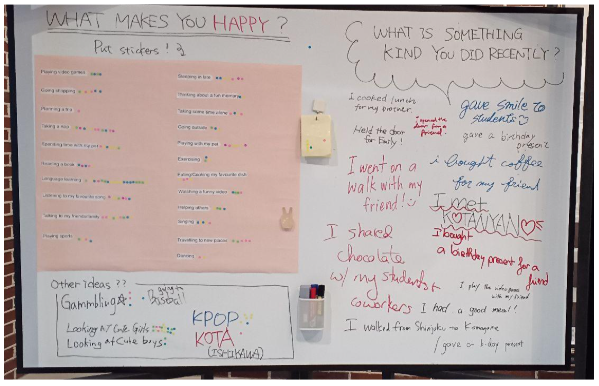 WHAT MAKES YOU HAPPY ?
Put stickers !
Playing video games
Going shopping
Planning a trip
Taking a nap
Spending time with my pet
Reading a book
Language learning
Listening to my favourite song
Talking to my friends/family
Playing sports
Standing in line
Thinking about a fun memory
Taking some time alone
Going outside
Playing with my pet
Exercising
Eating/Cooking my favourite dish
Watching a funny video
Helping others
Singing
Travelling to new places
Dancing
Other Ideas ??
Gambling
going to
Baseball
Looking AT Cute Girls
Looking at Cute boys
KPOP
KOTA
(ISHIKAWA)
WHAT IS SOMETHING
KIND YOU DID RECENTLY ?
I cooked lunch
for my partner.
I opened the
door for a
friend!
Held the door
for Emily!
gave smile to
students
gave a birthday
present
I went on a
walk with my
friend!
i bought coffee
for my friend
I met
KOTANYAN
I bought
a birthday present for a
friend
I shared
chocolate
w/ my students +
coworkers
I play the video games
w/ friend
I had a good meal!!
I walked from Shinjuku to Komagome
I gave a b-day present